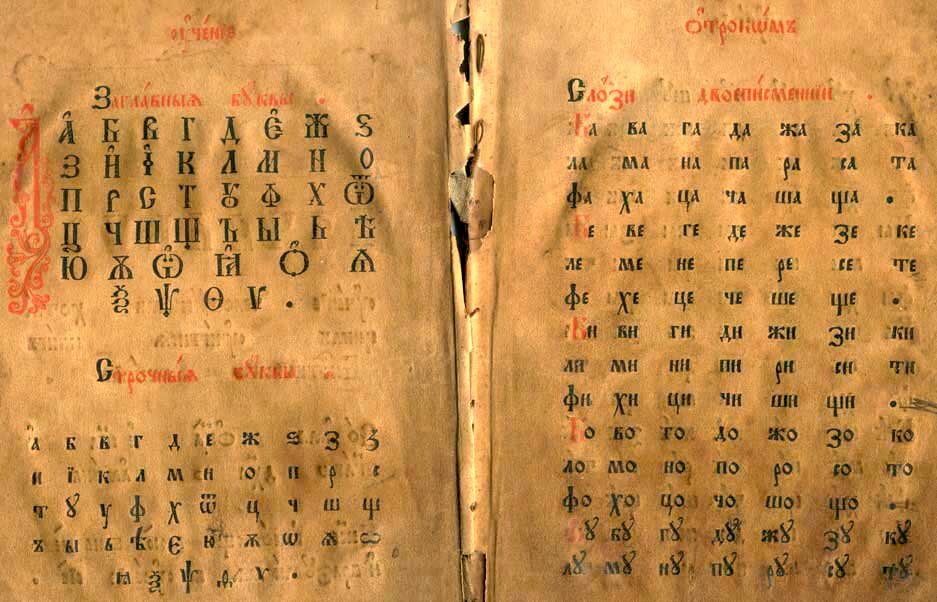 ᲂу҆че́нїе
Загла́вныѧ бꙋ́квы .
А҆ Б В Г Д Є҆ Ж Ѕ
З И҆ І҆ К Л М Н О
П Р С Т Ꙋ Ф Х Ѿ
Ц Ч Ш Щ Ъ Ы Ь Ѣ
Ю҆ Ѫ Ѡ҆ Ꙗ҆ Ѻ҆ Ѧ
Ѯ Ѱ Ѳ Ѵ .
Стро́чныѧ бꙋ́квы
а б в г д е ж ѕ з
и ї к л м н ю п р с
т ꙋ у ф х ѿ ц ч ш щ
ъ ы ь ѣ є ю ѫ ѡ ѧ
ꙗ ѯ ѱ ѳ ѵ .
ѻ҆трокѡ́мъ
Сло́зи двоепи́сменнїи .
Ба ва га да жа за ка
ла ма на па ра са та
фа ха ца ча ша ща .
Бе ве ге де же зе ке
ле ме не пе ре се те
фе хе це че ше ще .
Би ви ги ди жи зи ки
ли ми ни пи ри си ти
фи хи ци чи ши щи .
Бо во го до жо зо ко
ло мо но по ро со то
фо хо цо чо шо що .
вꙋ бꙋ гꙋ дꙋ жꙋ зꙋ кꙋ
лꙋ мꙋ нꙋ пꙋ рꙋ сꙋ тꙋ